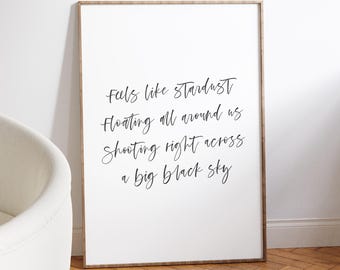 Feels like stardust
Floating all around us
Shooting right across
a big black sky